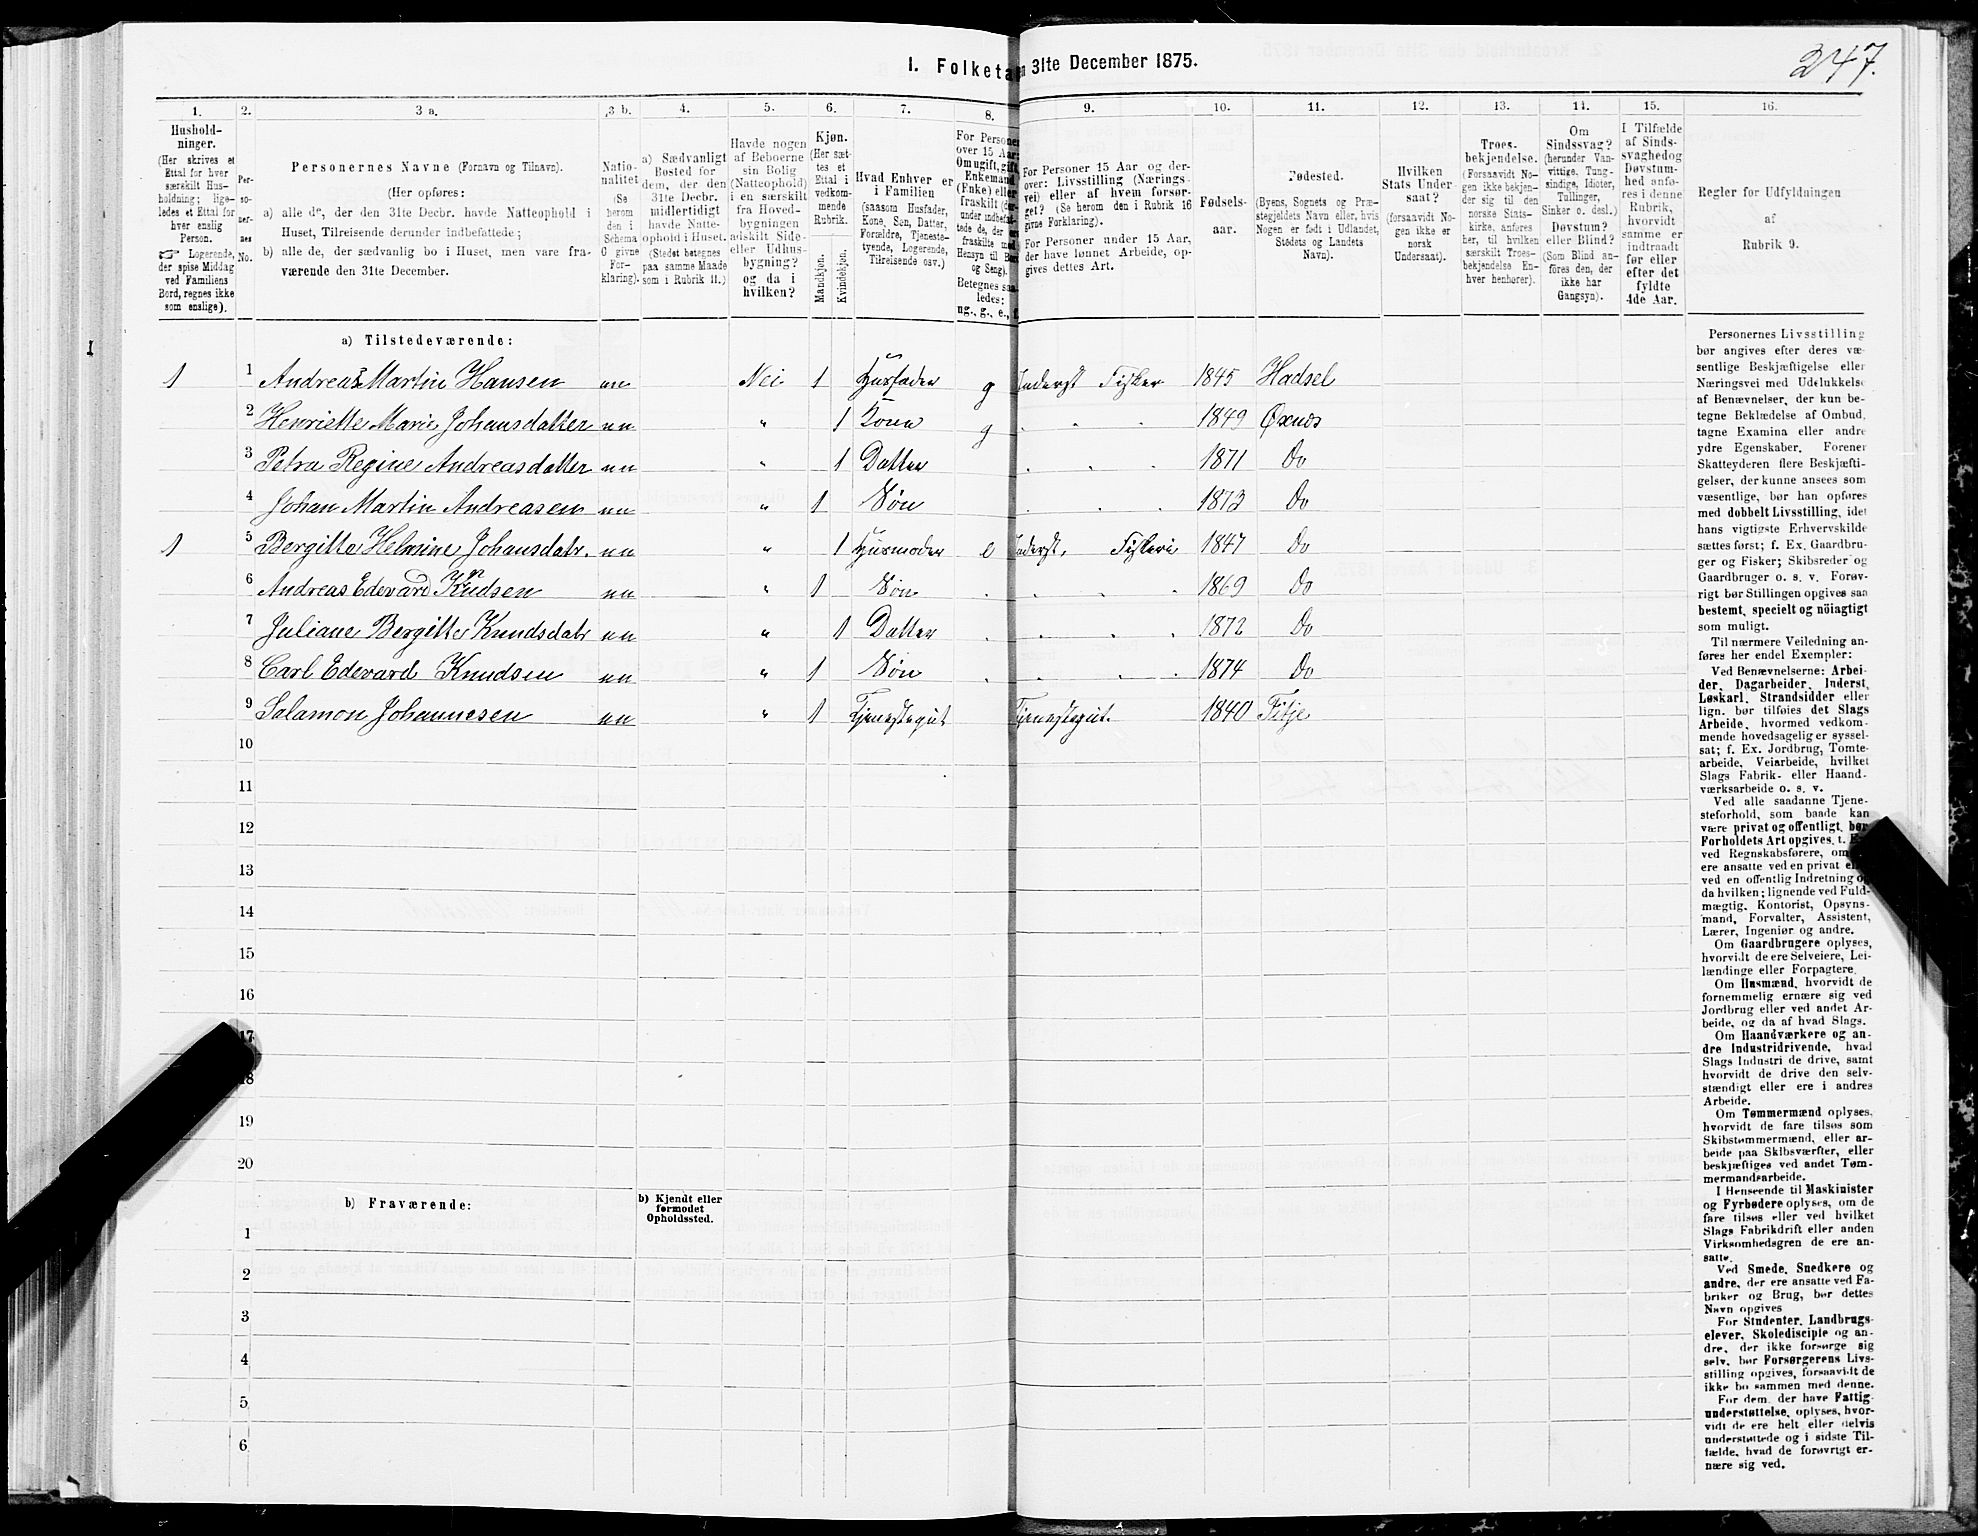 I. Folketa n 31te December 1875.
247.
1.
2.
3 a.
3 b.
4.
5.
6.
7.
8.
9.
10.
11.
12.
13.
14.
15.
16.
Hushold-
ninger.
(Her skrives et
Ettal for hver
særskilt Hus-
holdning; lige-
ledes et Ettal for
hver enslig
Person.
Logerende,
der spise Middag
ved Familiens
Bord, regnes ikke
som enslige).
Per-
so-
ner-
nes
No.
Personernes Navne (Fornavn og Tilnavn).
(Her opføres:
a) alle de, der den 31te Decbr. havde Natteophold i
Huset, Tilreisende derunder indbefattede;
b) alle de, der sædvanlig bo i Huset, men vare fra-
værende den 31te December.
Natio-
nalitet
(Se
herom
den i
Schema
6 givne
For-
klaring).
a) Sædvanligt
Bosted for
dem, der den
31te Decbr.
midlertidigt
havde Natte-
ophold i Huset.
(Stedet betegnes
paa samme Maade
som i Rubrik 11.)
Havde nogen
af Beboerne
sin Bolig
(Natteophold)
i en særskilt
fra Hoved-
bygningen
adskilt Side-
eller Udhus-
bygning?
og da i
hvilken?
Kjøn.
(Her sæt-
tes et
Ettal i
vedkom-
mende
Rubrik.
Mandkjøn.
Kvindekjøn.
Hvad Enhver er
i Familien
(saasom Husfader,
Kone, Søn, Datter,
Forældre, Tjeneste-
tyende, Logerende,
Tilreisende osv.)
For Persone
over 15 Aar:
Om ugift, gift,
Enkemand
(Enke) eller
fraskilt (der-
under indbefat-
tede de, der ere
fraskilte med
Hensyn til Bord
og Seng).
Betegnes saa-
ledes:
ug., g., e., f.
For Personer 15 Aar og der-
over: Livsstilling (Nærings-
vei) eller af hvem forsør-
get? (Se herom den i Rubrik 16
givne Forklaring).
For Personer under 15 Aar,
der have lønnet Arbeide, op-
gives dettes Art.
Fødsels-
aar.
Fødested.
(Byens, Sognets og Præ-
stegjeldets Navn eller, hvis
Nogen er født i Udlandet,
Stedets og Landets
Navn).
Hvilken
Stats Under-
saat?
(forsaavidt No-
gen ikke er
norsk
Undersaat).
Troes-
bekjendelse.
(Forsaavidt No-
gen ikke bekjen-
der sig til den
norske Stats-
kirke, anføres
her, til hvilken
særskilt Troes-
bekjendelse En-
hver henhører).
Om
Sindssvag?
(herunder Van-
vittige, Tung-
sindige, Idioter,
Tullinger,
Sinker o. desl.)
Døvstum?
eller Blind?
(Som Blind an-
føres den, der
ikke har
Gangsyn).
I Tilfælde
af Sinds-
svaghed og
Døvstum-
hed anfø-
res i denne
Rubrik,
hvorvidt
samme er
indtraadt
før eller
efter det
fyldte
4de Aar.
Regler for Udfyldningen
af
Rubrik 9.
1
a) Tilstedeværende:
1 1 Andreas Martin Hansen nn Nei 1 Husfader g Inderst Fisker 1845 Hadsel
2 Henriette Marie Johansdatter nn " 1 Kone g " " " 1849 Øxnes
3 Petra Regine Andreasdatter nn " 1 Datter " " " 1871 Do
4 Johan Martin Andreasen nn " 1 Søn " " " 1873 Do
1 5 Bergitte Helmine Johansdatr. nn " 1 Husmoder e Inderst, Fiskeri 1847 Do
6 Andreas Edevard Knudsen nn " 1 Søn " " " " 1869 Do
7 Juliane Bergitte Knudsdatr nn " 1 Datter " " " " 1872 Do
8 Carl Edevard Knudsen nn " 1 Søn " " " " 1874 Do
9 Salamon Johannesen nn " 1 Tjenestegut Tjenestegut. 1840 Titje
10
11
12
13
14
15
16
17
18
19
20
b) Fraværende:
b) Kjendt eller
formodet
Opholdssted.
1
2
3
4
5
6
Personernes Livsstilling
bør angives efter deres væ-
sentlige Beskjæftigelse eller
Næringsvei med Udelukkelse
af Benævnelser, der kun be-
tegne Beklædelse af Ombud,
tagne Examina eller andre
ydre Egenskaber. Forener
Skatteyderen flere Beskjæfti-
gelser, der kunne ansees som
væsentlige, bør han opføres
med dobbelt Livsstilling, idet
hans vigtigste Erhvervskilde
sættes først; f. Ex. Gaardbru-
ger og Fisker; Skibsreder og
Gaardbruger o. s. v. Forøv-
rigt bør Stillingen opgives saa
bestemt, specielt og nöiagtigt
som muligt.
Til nærmere Veiledning an-
føres her endel Exempler:
Ved Benævnelserne: Arbei-
der, Dagarbeider, Inderst,
Løskarl, Strandsidder eller
lign. bør tilføies det Slags
Arbeide, hvormed vedkom-
mende hovedsagelig er syssel-
sat; f. Ex. Jordbrug, Tomte-
arbeide, Veiarbeide, hvilket
Slags Fabrik- eller Haand-
værksarbeide o. s. v.
Ved alle saadanne Tjene-
steforhold, som baade kan
være privat og offentligt, bør
Forholdets Art opgives, t. E
ved Regnskabsførere, om
ere ansatte ved en privat el
ved en offentlig Indretning o
da hvilken; lignende ved Fuld-
mægtig, Kontorist, Opsyns-
mand, Forvalter, Assistent,
Lærer, Ingeniør og andre.
Om Gaardbrugere oplyses,
hvorvidt de ere Selveiere, Lei-
lændinge eller Forpagtere.
Om Husmænd, hvorvidt de
fornemmelig ernære sig ved
Jordbrug eller ved andet Ar-
beide, og da af hvad Slags.
Om Haandværkere og an-
dre Industridrivende, hvad
Slags Industri de drive, samt
hvorvidt de drive den selv-
stændigt eller ere i andres
Arbeide.
Om Tømmermænd oplyses,
hvorvidt de fare tilsøs som
Skibstømmermænd, eller ar-
beide paa Skibsværfter, eller
beskjæftiges ved andet Tøm-
mermandsarbeide.
I Henseende til Maskinister
og Fyrbødere oplyses, om de
fare tilsøs eller ved hvilket
Slags Fabrikdrift eller anden
Virksomhedsgren de ere an-
satte.
Ved Smede, Snedkere og
andre, der ere ansatte ved Fa-
briker og Brug, bør dettes
Navn opgives
For Studenter, Landbrugs-
elever, Skoledisciple og an-
dre, der ikke forsørge sig
selv, bør Forsørgerens Livs-
stilling opgives, forsaavidt de
ikke bo sammen med denne.
For dem, der have Fattig-
understøttelse, oplyses, hvor-
vidt de ere helt eller delvis
understøttede og i sidste Til-
fælde, hvad de forøvrigt er-
nære sig ved.